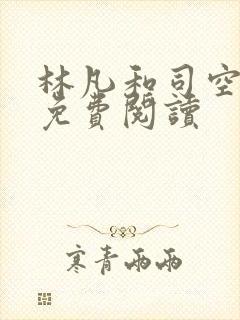 林凡和司空
免費閱讀
寒青兩兩